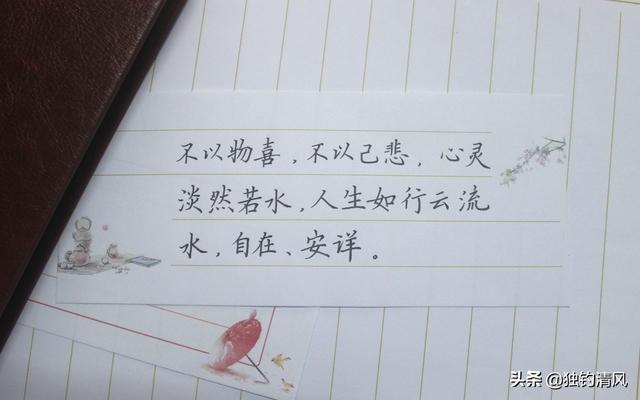 不以物喜，不以己悲，心灵
淡然若水，人生如行云流
水，自在、安详。
头条 @独钓清风